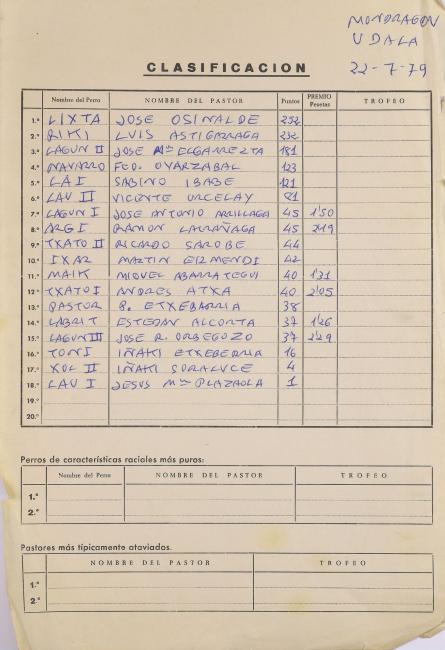 MONDRAGON
UDALA
22-7-79
CLASIFICACION
Nombre del Perro NOMBRE DEL PASTOR Puntos PREMIO Pesetas TROFEO
1.º LIXTA JOSE OSINALDE 252
2.º RIKI LUIS ASTIGARRAGA 232
3.º LAGUN II JOSE Mª ELGARREZTA 181
4.º NAVARRO FCO. OYARZABAL 123
5.º LAI SABINO IBABE 121
6.º LAU II VICENTE URCELAY 81
7.º LAGUN I JOSE ANTONIO ARRILLAGA 45 1'50
8.º ARGI RAMON LARRAÑAGA 45 2'19
9.º TXATO II RICARDO SAROBE 44
10.º IXAR MARTIN EIZMENDI 42
11.º MAIK MIGUEL ABARRATEGUI 40 1'31
12.º TXATO I ANDRES ATXA 40 2'05
13.º PASTOR P. ETXEBARRIA 38
14.º LABRIT ESTEBAN ALCORTA 37 1'26
15.º LAGUN III JOSE R. ORBEGOZO 37 2'29
16.º TONI IÑAKI ETXEBERRIA 16
17.º XOL II IÑAKI SORALUCE 4
18.º LAU I JESUS Mª PLAZAOLA 1
19.º
20.º
Perros de características raciales más puras:
Nombre del Perro NOMBRE DEL PASTOR TROFEO
1.º
2.º
Pastores más típicamente ataviados.
NOMBRE DEL PASTOR TROFEO
1.º
2.º